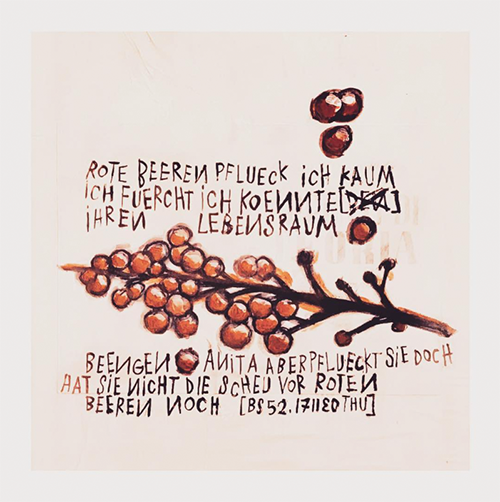 ROTE BEEREN PFLUECK ICH KAUM
ICH FUERCHT ICH KOENNTE [DEN]
IHREN LEBENSRAUM
BEENGEN ANITA ABER PFLUECKT SIE DOCH
HAT SIE NICHT DIE SCHEU VOR ROTEN
BEEREN NOCH [BS 52.171180 THU]